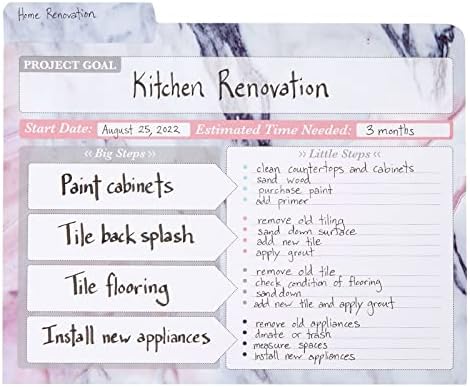 Home Renovation
PROJECT GOAL
Kitchen Renovation
Start Date: August 25, 2022 Estimated Time Needed: 3 months
« Big Steps »
» Little Steps «
Paint cabinets
clean countertops and cabinets
sand wood
purchase paint
add primer
Tile back splash
remove old tiling
sand down surface
add new tile
apply grout
Tile flooring
remove old tile
check condition of flooring
sand down
add new tile and apply grout
Install new appliances
remove old appliances
donate or trash
measure spaces
install new appliances